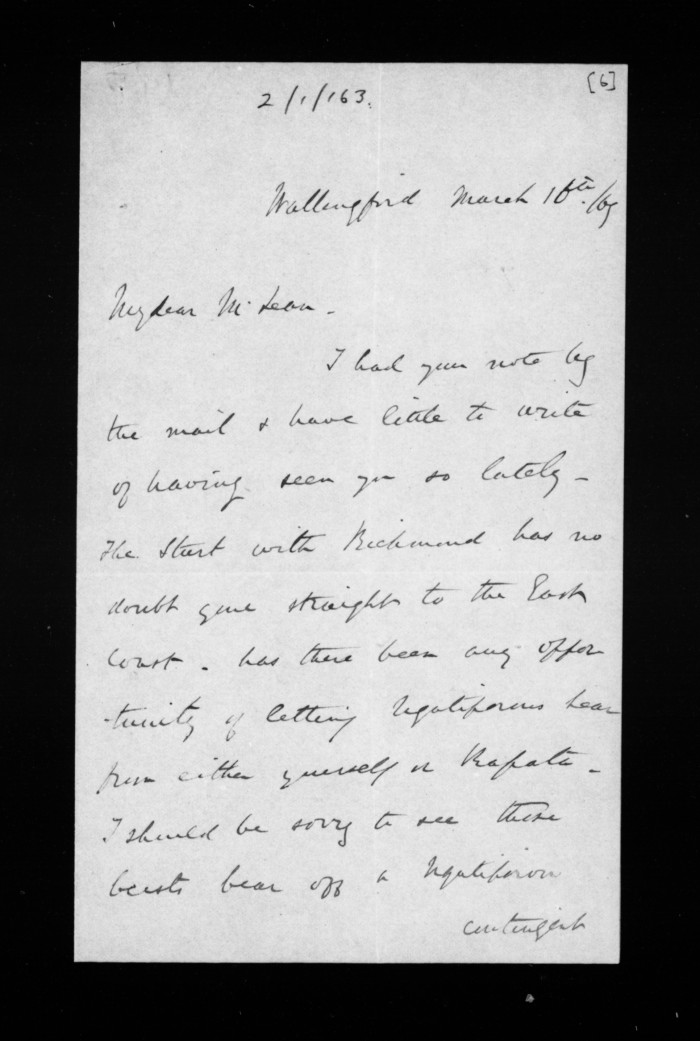 [6]
2/1/163.
Wallingford March 16th./69
My dear McLean.
I had your note by
the mail & have little to write
of having seen you so lately -
The Sturt with Richmond has no
doubt gone straight to the East
Coast. has there been any oppor
-tunity of letting Ngatiporou hear
from either yourself or Rapata -
I should be sorry to see those
beasts bear off a Ngatiporou
contingent